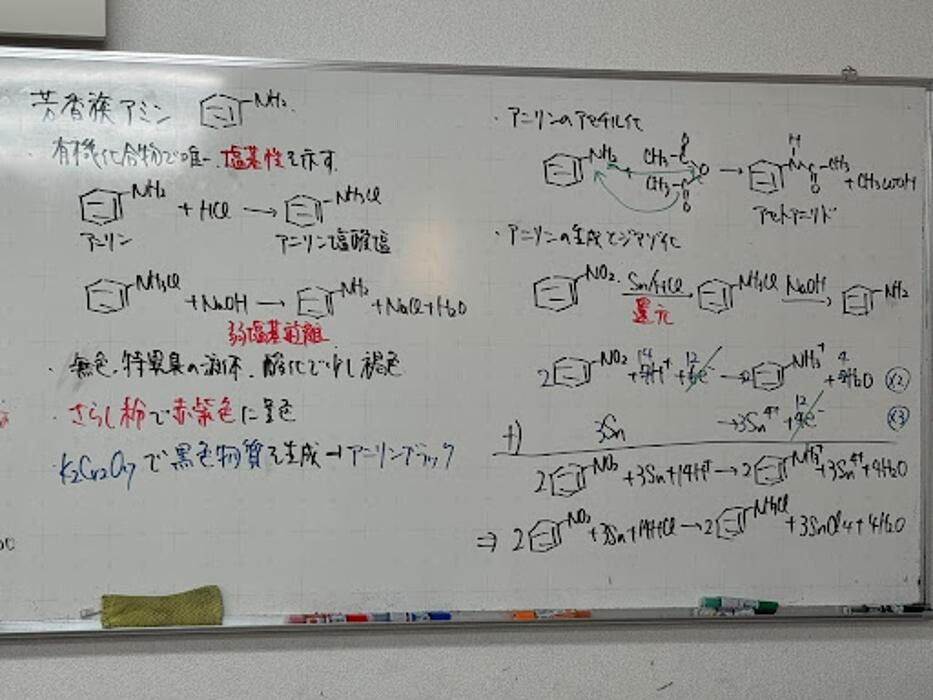 芳香族アミン NH₂
・有機化合物で唯一、塩基性を示す
NH₂ + HCl → NH₃Cl
アニリン アニリン塩酸塩
NH₃Cl + NaOH → NH₂ + NaCl + H₂O
弱塩基遊離
・無色、特異臭の液体、酸化で少し褐色
・さらし粉で赤紫色に呈色
K₂Cr₂O₇で黒色物質を生成→アニリンブラック
・アニリンのアセチル化
NH₂ + CH₃-C O O CH₃-C O → H N C CH₃ O + CH₃COOH
アセトアニリド
・アニリンの生成とジアゾ化
NO₂ Sn/HCl → NH₃Cl NaOH → NH₂
還元
2 NO₂ + 14H⁺ + 12e⁻ → 2 NH₃⁺ + 4H₂O (×2)
3Sn → 3Sn⁴⁺ + 12e⁻ (×3)
+)
2 NO₂ + 3Sn + 14H⁺ → 2 NH₃⁺ + 3Sn⁴⁺ + 4H₂O
⇒ 2 NO₂ + 3Sn + 14HCl → 2 NH₃Cl + 3SnCl₄ + 4H₂O